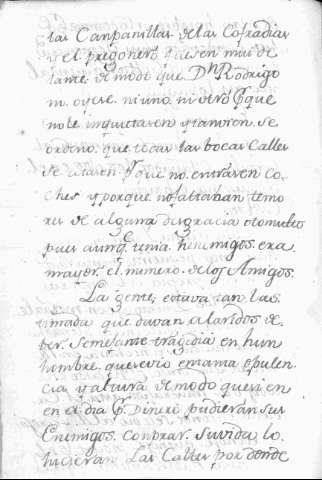 las Canpanillas de las Cofradias
y el pregonero fuesen mui de
lante de modo que Dn Rodrigo
no oyese ni uno, ni otro pr que
no le inquietasen y tanvien se
ordeno que todas las bocas Calles
se atasen pr que no entrasen co
ches y porque no faltavan temo
res de alguna desgracia o tomulto
pues aunq. tenia henemigos era
mayor el numero de los Amigos.
La gente, estava tan las
timada que davan alaridos de
ber Semejante tragedia en hun
hombre, que se vio en tama opulen
cia y altura de modo que si en
en el dia pr Dinero pudieran sus
Enemigos conprar su vida lo
hicieran. Las Calles por donde